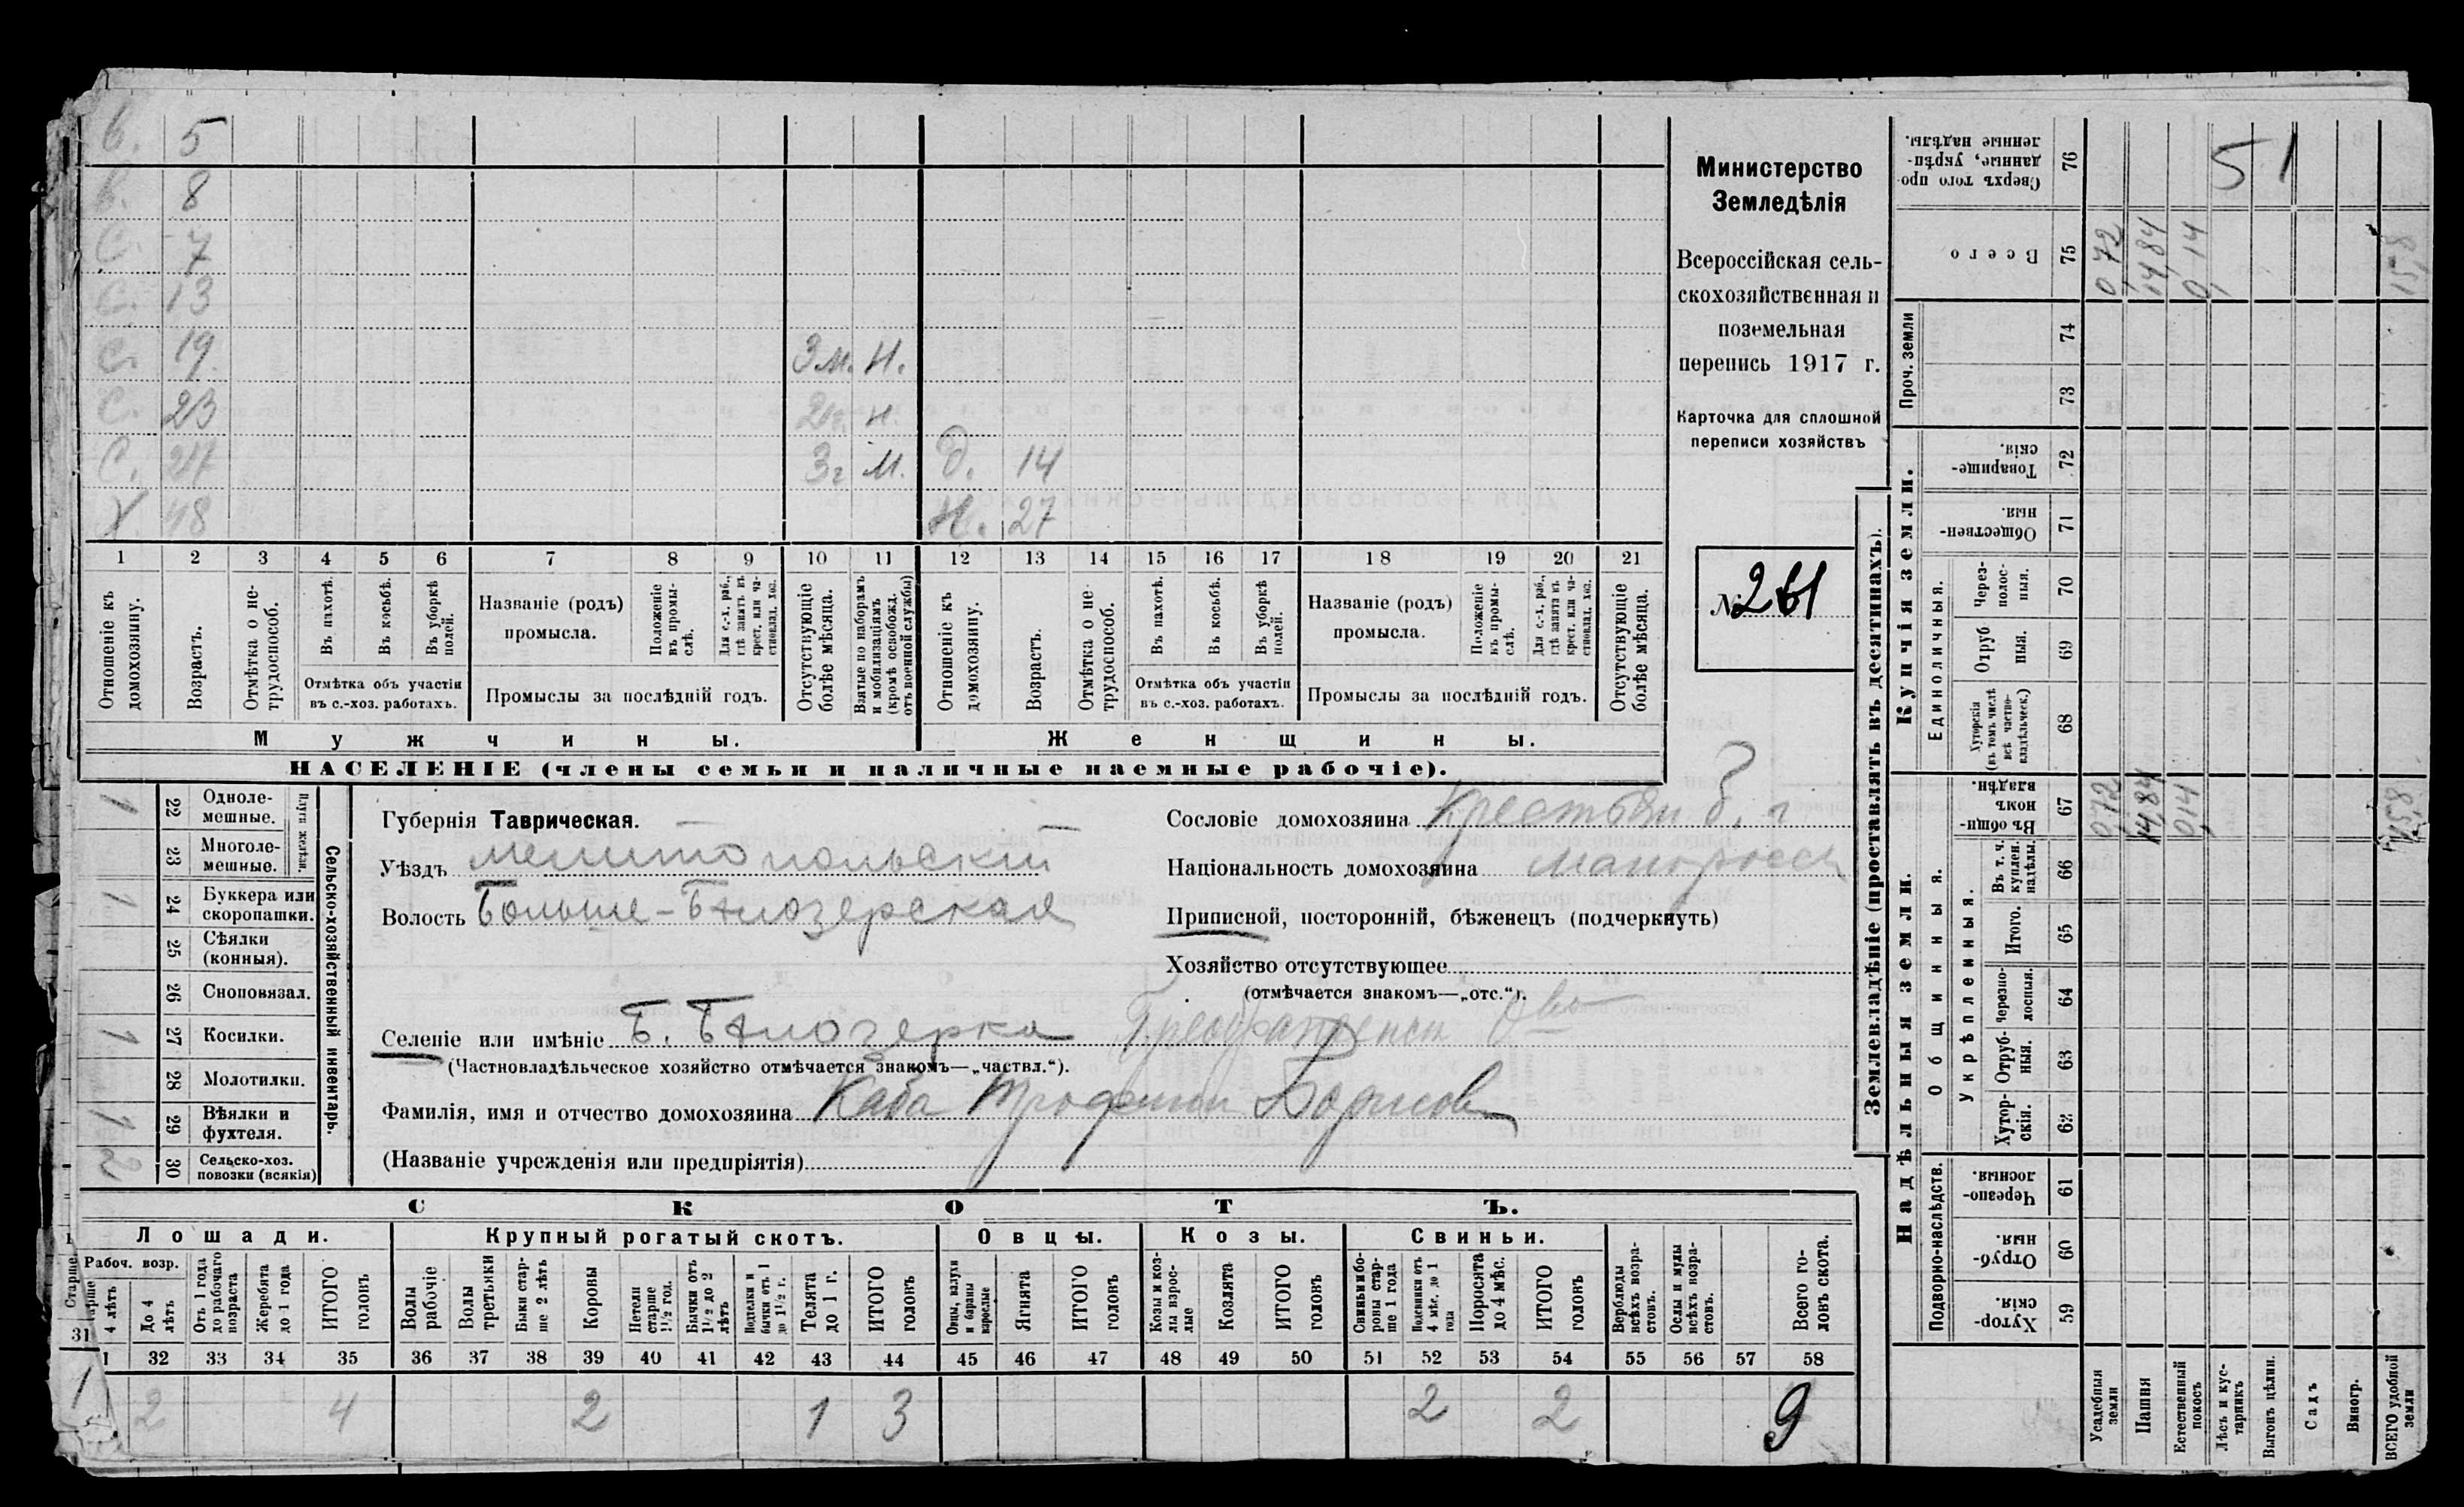 в. 5
в. 8
С. 7
С. 13
С. 19 3м. Н.
С. 23 2г. н.
С. 27 3г м. д. 14
Х 48 Н. 27
1 2 3 4 5 6 7 8 9 10 11 12 13 14 15 16 17 18 19 20 21
Отношеніе къ домохозяину.
Возрастъ.
Отмѣтка о нетрудоспособ.
Въ пахотѣ.
Въ косьбѣ.
Въ уборкѣ полей.
Отмѣтка объ участіи въ с.-хоз. работахъ.
Названіе (родъ) промысла.
Положеніе въ промыслѣ.
Для с.-х. раб., гдѣ занятъ въ крест. или частновлад. хоз.
Промыслы за послѣдній годъ.
Отсутствующіе болѣе мѣсяца.
Взятые по наборамъ и мобилизаціямъ (кромѣ освобожд. отъ военной службы)
Отношеніе къ домохозяину.
Возрастъ.
Отмѣтка о нетрудоспособ.
Въ пахотѣ.
Въ косьбѣ.
Въ уборкѣ полей.
Отмѣтка объ участіи въ с.-хоз. работахъ.
Названіе (родъ) промысла.
Положеніе въ промыслѣ.
Для с.-х. раб., гдѣ занята въ крест. или частновлад. хоз.
Промыслы за послѣдній годъ.
Отсутствующіе болѣе мѣсяца.
Мужчины.
Женщины.
НАСЕЛЕНІЕ (члены семьи и наличные наемные рабочіе).
Министерство
Земледѣлія
Всероссійская сель-
скохозяйственная и
поземельная
перепись 1917 г.
Карточка для сплошной
переписи хозяйствъ
№ 261
Сельско-хозяйственный инвентарь.
Плуги желѣзн.
22 Однолемешные. 1
23 Многолемешные.
24 Буккера или скоропашки. 1
25 Сѣялки (конныя).
26 Сноповязал.
27 Косилки. 1
28 Молотилки.
29 Вѣялки и фухтеля. 1
30 Сельско-хоз. повозки (всякія) 2
Губернія Таврическая.
Уѣздъ Мелитопольскій
Волость Больше-Бѣлозерская
Селеніе или имѣніе Б. Бѣлозерка
(Частновладѣльческое хозяйство отмѣчается знакомъ—„частвл.“).
Фамилія, имя и отчество домохозяина Каба Трофим Борисов
(Названіе учрежденія или предпріятія)
Сословіе домохозяина
Національность домохозяина малоросс
Приписной, посторонній, бѣженецъ (подчеркнуть)
Хозяйство отсутствующее
(отмѣчается знакомъ—„отс.“).
СКОТЪ.
Лошади. Крупный рогатый скотъ. Овцы. Козы. Свиньи.
Рабоч. возр.
Старше 4 лѣтъ
До 4 лѣтъ
Отъ 1 года до рабочаго возраста
Жеребята до 1 года
ИТОГО головъ
Волы рабочіе
Волы третьяки
Быки старше 2 лѣтъ
Коровы
Нетели старше 1½ год.
Бычки отъ 1½ до 2 лѣтъ
Подтелки и бычки отъ 1 до 1½ г.
Телята до 1 г.
ИТОГО головъ
Овцы, валухи и бараны взрослые
Ягнята
ИТОГО головъ
Козы и козлы взрослые
Козлята
ИТОГО головъ
Свиньи и боровы старше 1 года
Подсвинки отъ 4 мѣс. до 1 года
Поросята до 4 мѣс.
ИТОГО головъ
Верблюды всѣхъ возрастовъ.
Ослы и мулы всѣхъ возрастовъ.
Всего головъ скота.
31 32 33 34 35 36 37 38 39 40 41 42 43 44 45 46 47 48 49 50 51 52 53 54 55 56 57 58
1 2 4 2 1 3 2 2 9
Землевладѣніе (проставлять въ десятинахъ).
Купчія земли.
Надѣльныя земли.
76 Сверхъ того проданные, укрѣпленные надѣлы.
75 Всего 0,72 14,84 0,14 15,8
Проч. земли
74
73
72 Товарищескія.
71 Общественныя.
Единоличныя.
70 Черезполосныя.
69 Отрубныя.
68 Хуторскія (въ томъ числѣ всѣ частновладѣльческ.)
Общинныя.
67 Въ общинномъ владѣн. 0,72 14,84 0,14 15,8
Укрѣпленныя.
66 Въ т. ч. куплен. надѣлы.
65 Итого.
64 Черезполосныя.
63 Отрубныя.
62 Хуторскія.
Подворно-наслѣдств.
61 Черезполосныя
60 Отрубныя.
59 Хуторскія.
Усадебныя земли
Пашня
Естественный покосъ
Лѣсъ и кустарникъ
Выгонъ цѣлин.
Садъ
Виногр.
ВСЕГО удобной земли
51